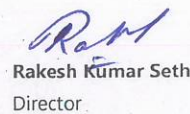 Rakesh Kumar Seth
Director